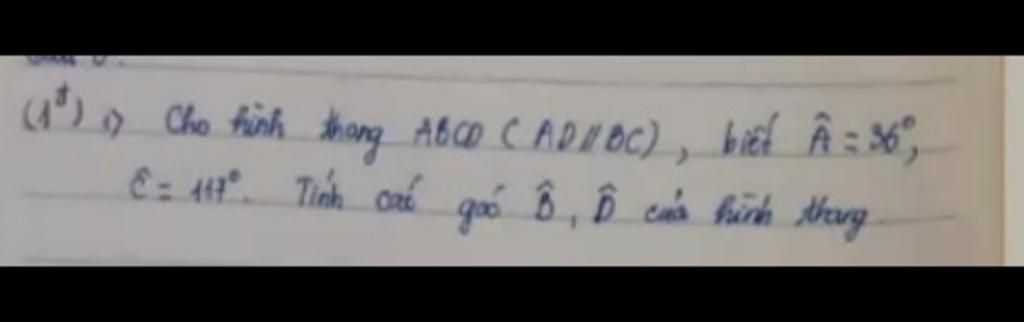 (1đ) 1) Cho hình thang ABCD (AD//BC), biết Â = 36°,
Ĉ = 117°. Tính các góc B̂, D̂ của hình thang